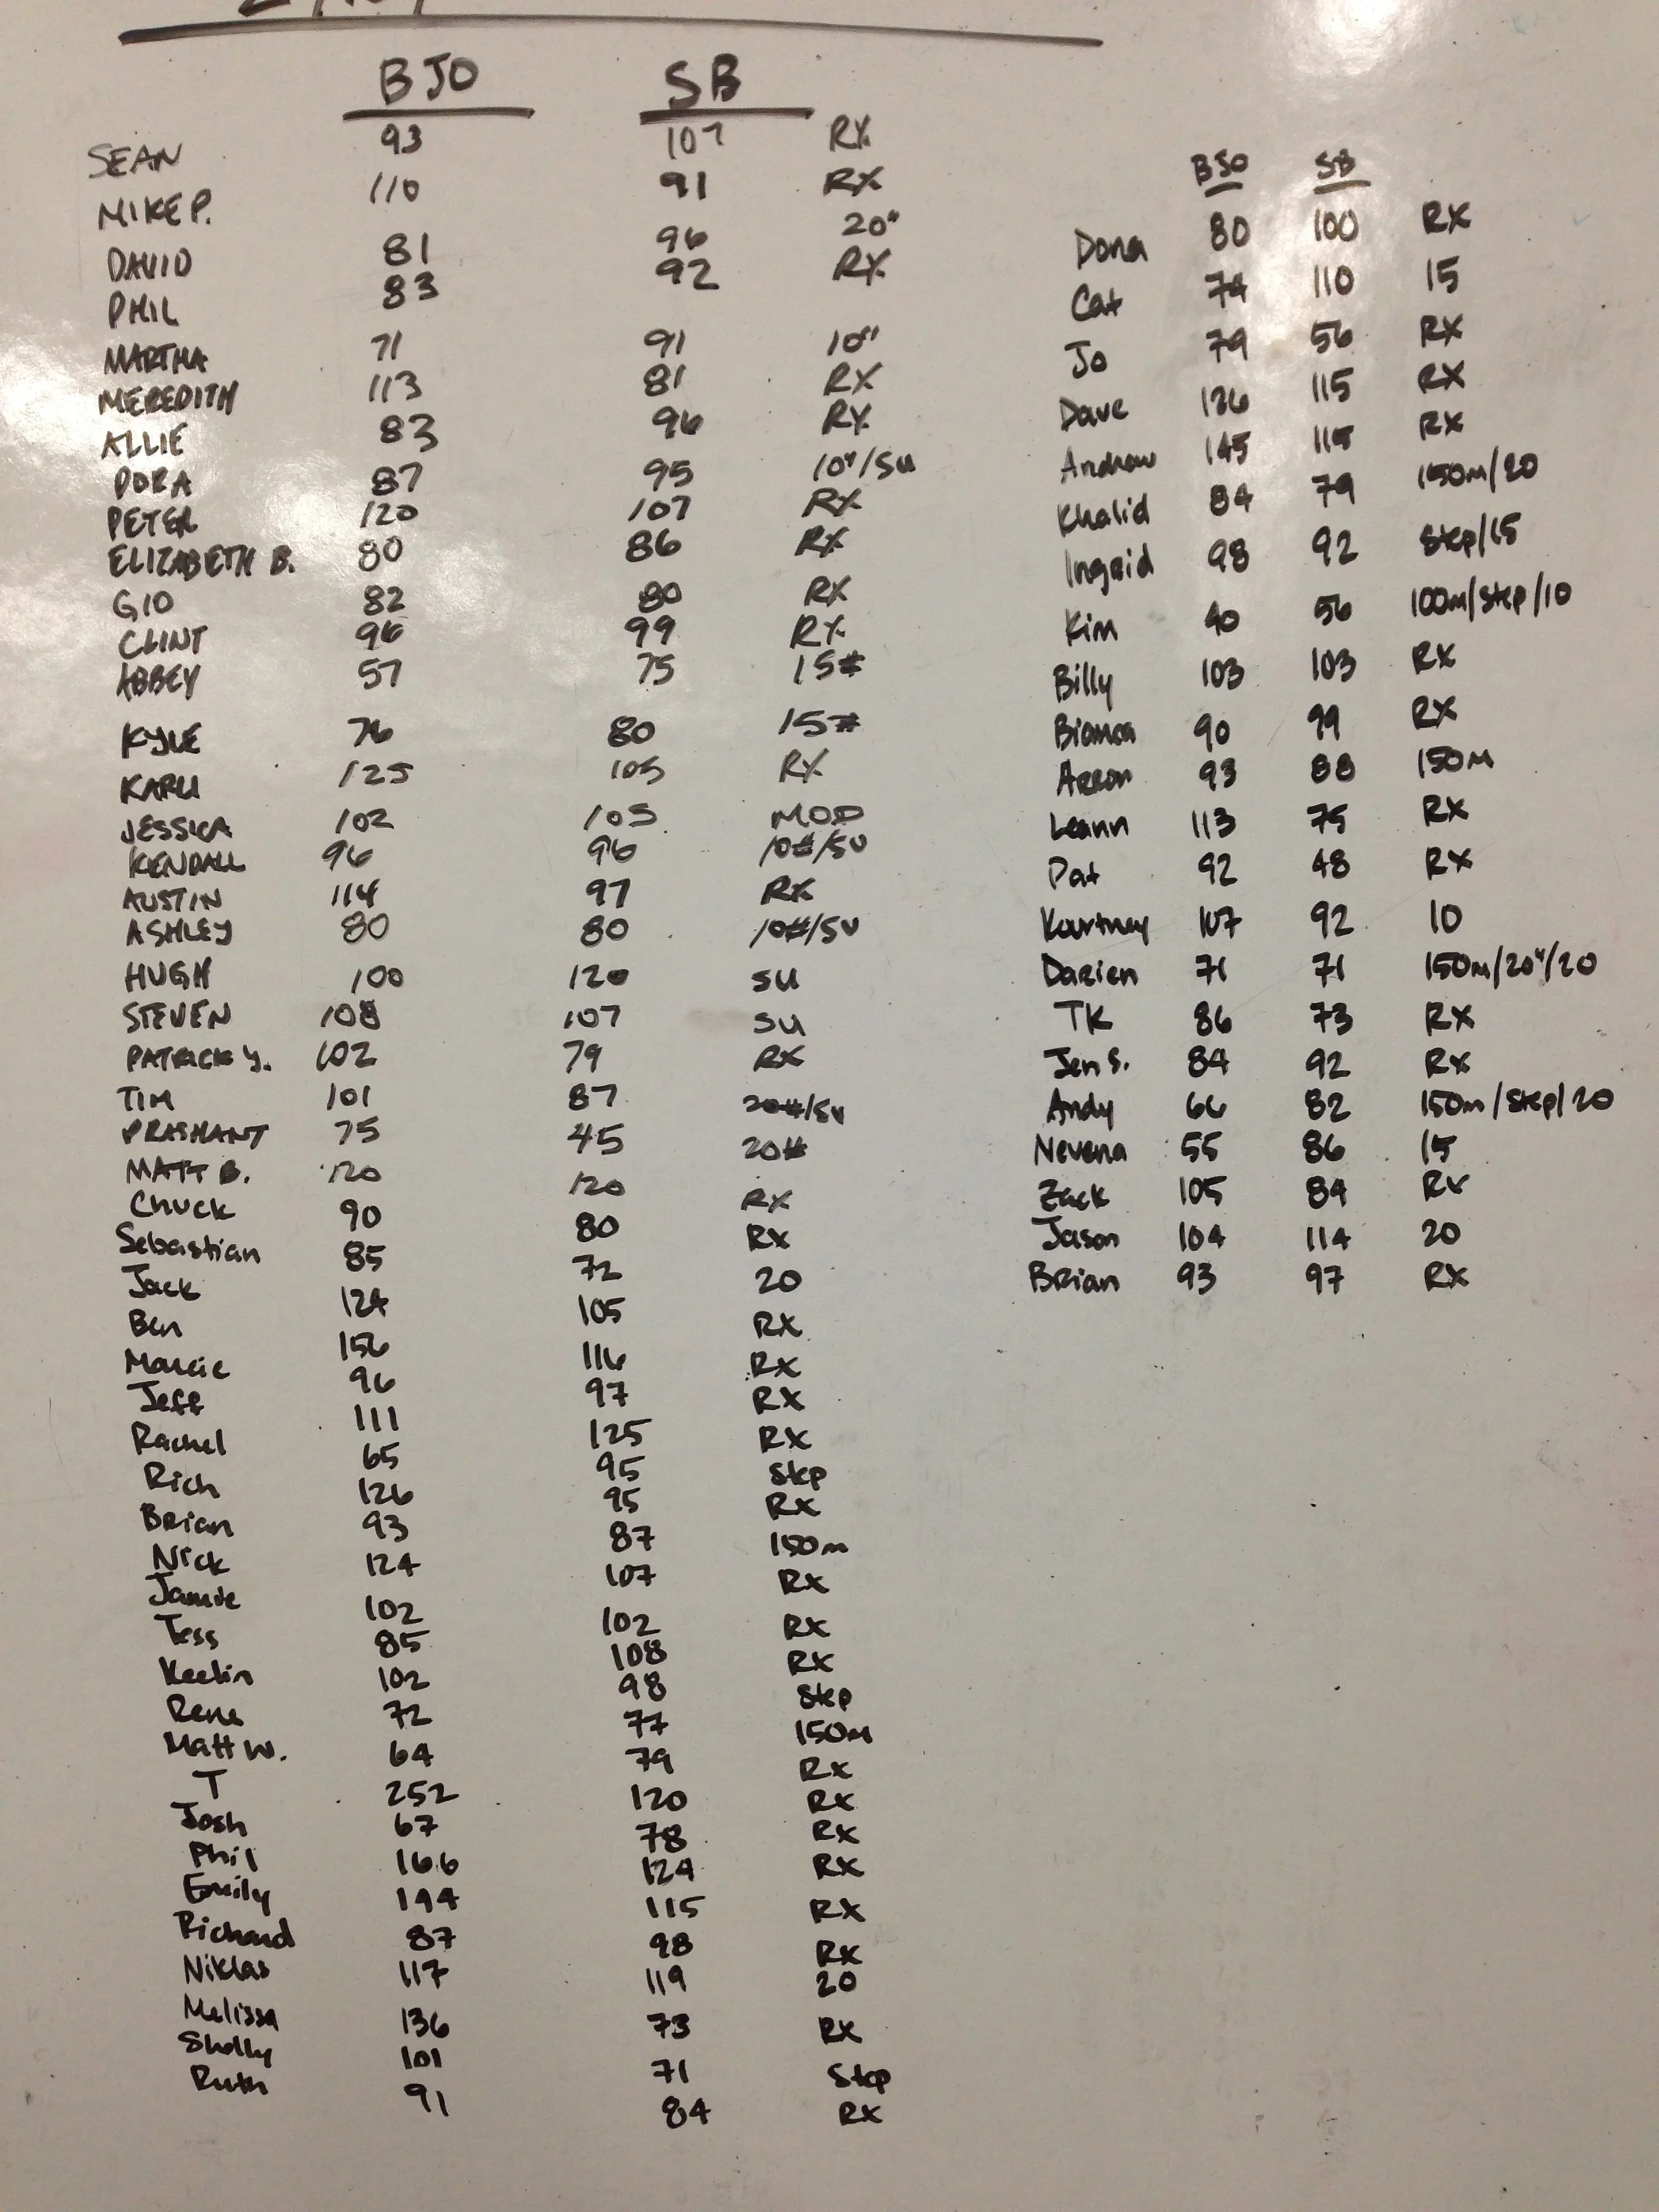 BJO SB
SEAN 93 107 RX
MIKE P. 110 91 RX
DAVID 81 96 20"
PHIL 83 92 RX
MARTHA 71 91 10"
MEREDITH 113 81 RX
ALLIE 83 96 RX
DORA 87 95 10"/SU
PETER 120 107 RX
ELIZABETH B. 80 86 RX
GIO 82 80 RX
CLINT 96 99 RX
ABBEY 57 75 15#
KYLE 76 80 15#
KARLI 125 105 RX
JESSICA 102 105 MOD
KENDALL 96 96 10#/SU
AUSTIN 114 97 RX
ASHLEY 80 80 10#/SU
HUGH 100 120 SU
STEVEN 108 107 SU
PATRICK Y. 102 79 RX
TIM 101 87 20#/SU
PRASHANT 75 45 20#
MATT B. 120 120 RX
Chuck 90 80 RX
Sebastian 85 72 20
Jack 124 105 RX
Ben 156 116 RX
Marcie 96 97 RX
Jeff 111 125 RX
Rachel 65 95 Step
Rich 126 95 RX
Brian 93 87 150m
Nick 124 107 RX
Jamie 102 102 RX
Tess 85 108 RX
Keelin 102 98 Step
Rene 72 77 150m
Matt W. 64 79 RX
T 252 120 RX
Josh 67 78 RX
Phil 166 124 RX
Emily 144 115 RX
Richard 87 98 RX
Niklas 117 119 20
Melissa 136 73 RX
Shelly 101 71 Step
Ruth 91 84 RX
BJO SB
Dona 80 100 RX
Cat 74 110 15
Jo 79 56 RX
Dave 136 115 RX
Andrew 145 115 RX
Khalid 84 79 150m/20
Ingrid 98 92 Step/15
Kim 40 56 100m/Step/10
Billy 103 103 RX
Bianca 90 99 RX
Arron 93 88 150m
Leann 113 75 RX
Pat 92 48 RX
Kourtney 107 92 10
Darien 71 71 150m/20"/20
TK 86 73 RX
Jen S. 84 92 RX
Andy 66 82 150m/Step/20
Nevena 55 86 15
Zack 105 84 RX
Jason 104 114 20
Brian 93 97 RX